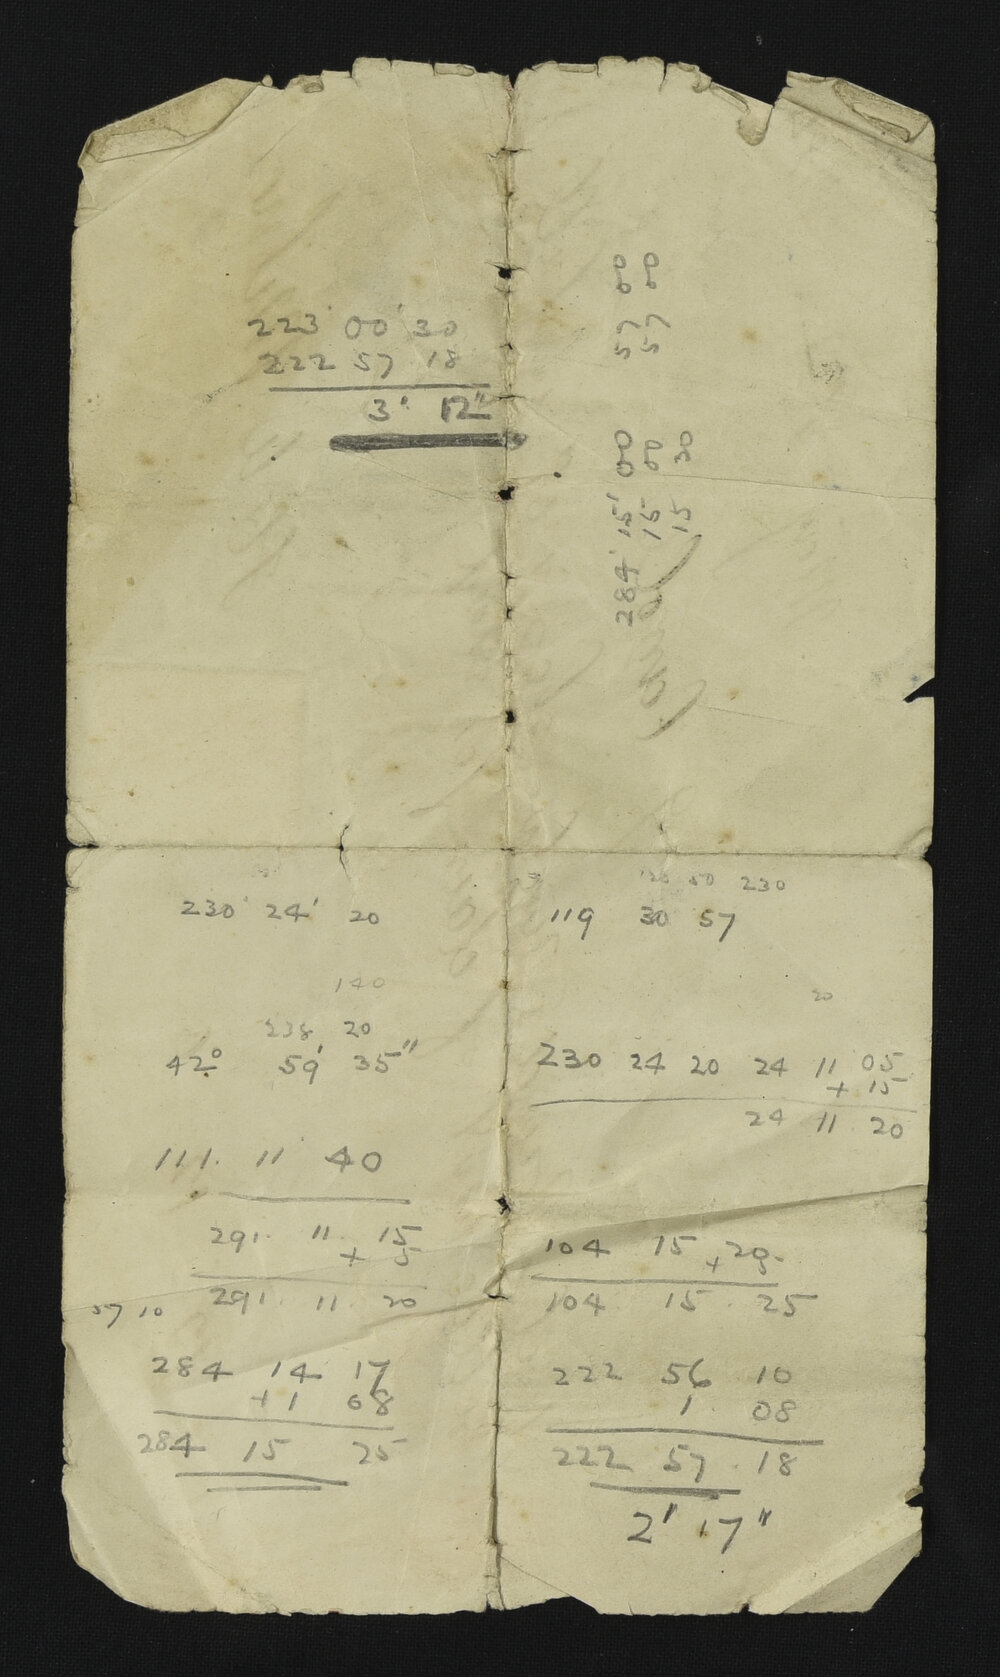 223° 00' 30
222 57 18
3' 12"
284° 15' 00
15 00
15 30
57 00
57 00
230° 24' 20
140
238 20
42° 59' 35"
111. 11 40
291. 11. 15
+ 5
57 10 291. 11. 20
284 14 17
+1 08
284 15 25
120 50 230
119 30 57
20
230 24 20 24 11 05
+ 15
24 11 20
104 15 20
+ 5
104 15 25
222 56 10
1 08
222 57 18
2' 17"